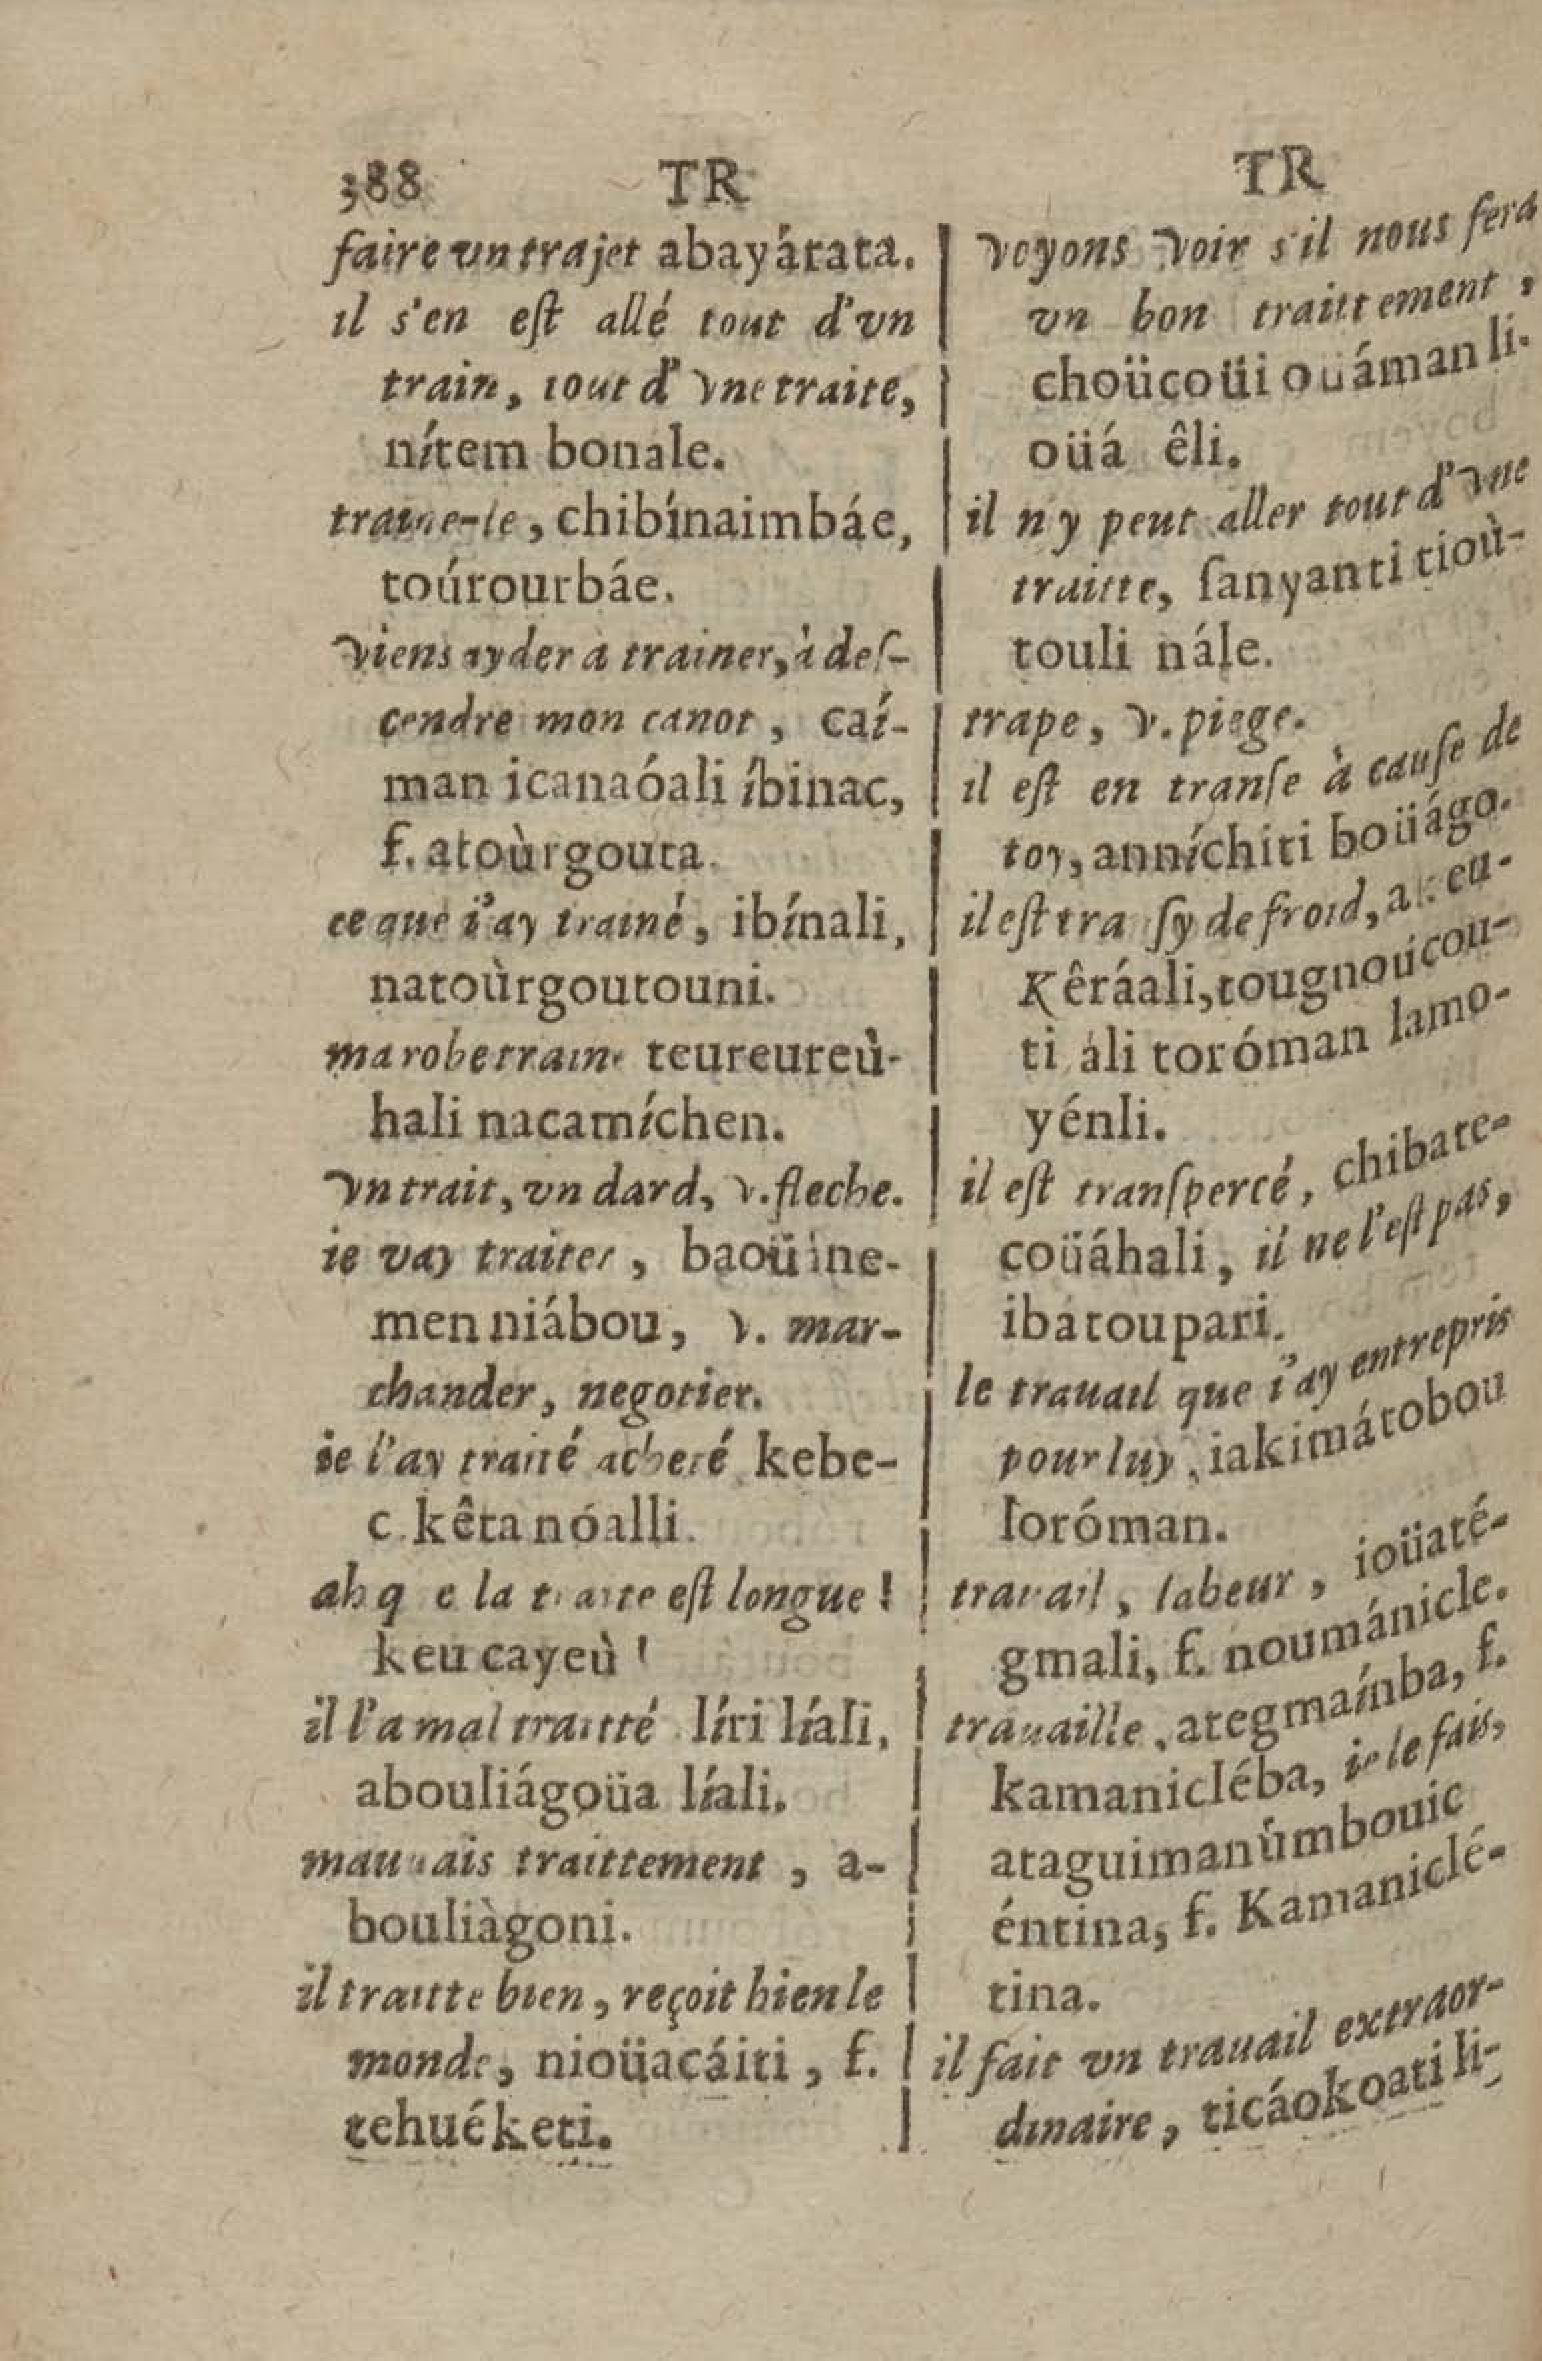 388 TR
faire vn trajet abayárata.
il s'en eſt allé tout d'vn
train, tout d'vne traite,
nítem bonale.
traine-le, chibínaimbáe,
toúrourbáe.
viens ayder a trainer, à deſ-
cendre mon canot, caí-
man icanaóali íbinac,
f. atoùrgouta.
ce que i'ay trainé, ibínali,
natoùrgoutouni.
ma robe traine teureureù-
hali nacamíchen.
vn trait, vn dard, v. fleche.
ie vay traiter, baoüine-
men niábou, v. mar-
chander, negotier.
ie l'ay traité acheté kebe-
c kêta nóalli.
ah q e la traite eſt longue!
keu cayeù!
il l'a mal traitté líri líali,
abouliágoüa líali.
mauuais traittement, a-
bouliàgoni.
il traitte bien, reçoit bien le
monde, nioüacáiti, f.
tehuéketi.
TR
voyons voir s'il nous fera
vn bon traittement,
choücoüi ouáman li-
oüá êli.
il n'y peut aller tout d'vne
traitte, ſanyanti tioù-
touli nále.
trape, v. piege.
il eſt en tranſe à cauſe de
toy, anníchiti boüágo.
il eſt tra ſy de froid, a eu-
Kêráali, tougnoúcou-
ti áli toróman lamo-
yénli.
il eſt tranſpercé, chibate-
coüáhali, il ne l'eſt pas,
ibátoupari.
le trauail que i'ay entrepris
pour luy, iakimátobou
loróman.
trauail, labeur, ioüaté-
gmali, f. noumánicle.
trauaille, ategmaínba, f.
kamanicléba, ie le fais,
ataguimanúmbouic
éntina, f. Kamaniclé-
tina.
il fait vn trauail extraor-
dinaire, ticáokoati li-